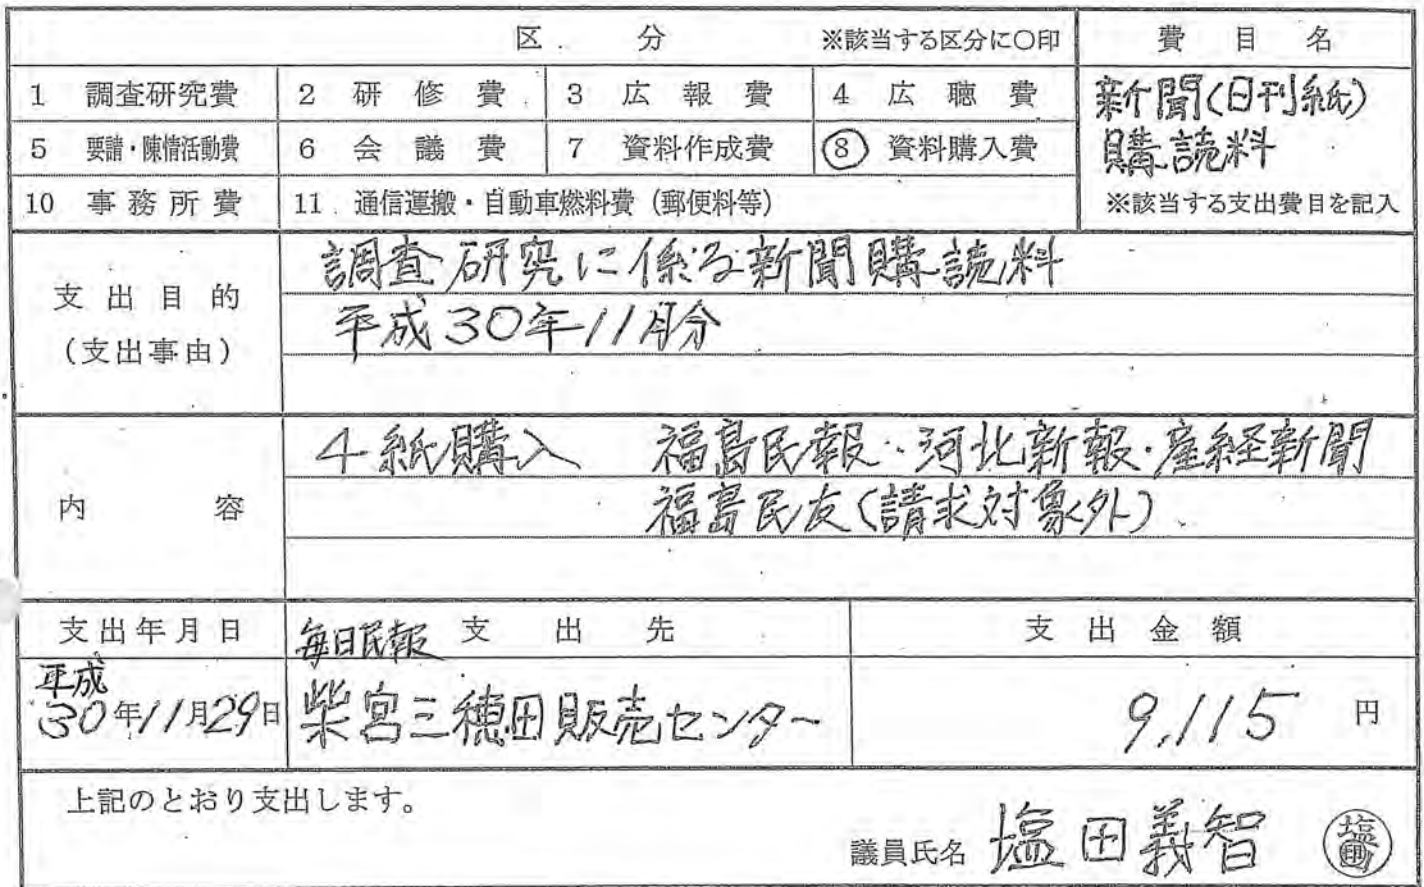 区 分 ※該当する区分に○印 費 目 名
1 調査研究費 2 研修費 3 広報費 4 広聴費 新聞(日刊紙)
5 要請・陳情活動費 6 会議費 7 資料作成費 ⑧ 資料購入費 購読料
10 事務所費 11 通信運搬・自動車燃料費(郵便料等) ※該当する支出費目を記入
支出目的
(支出事由)
調査研究に係る新聞購読料
平成30年11月分
内 容
4紙購入 福島民報・河北新報・産経新聞
福島民友(請求対象外)
支出年月日 毎日民報 支出先 支出金額
平成
30年11月29日 柴宮三穂田販売センター 9,115 円
上記のとおり支出します。
議員氏名 塩田義智 塩田